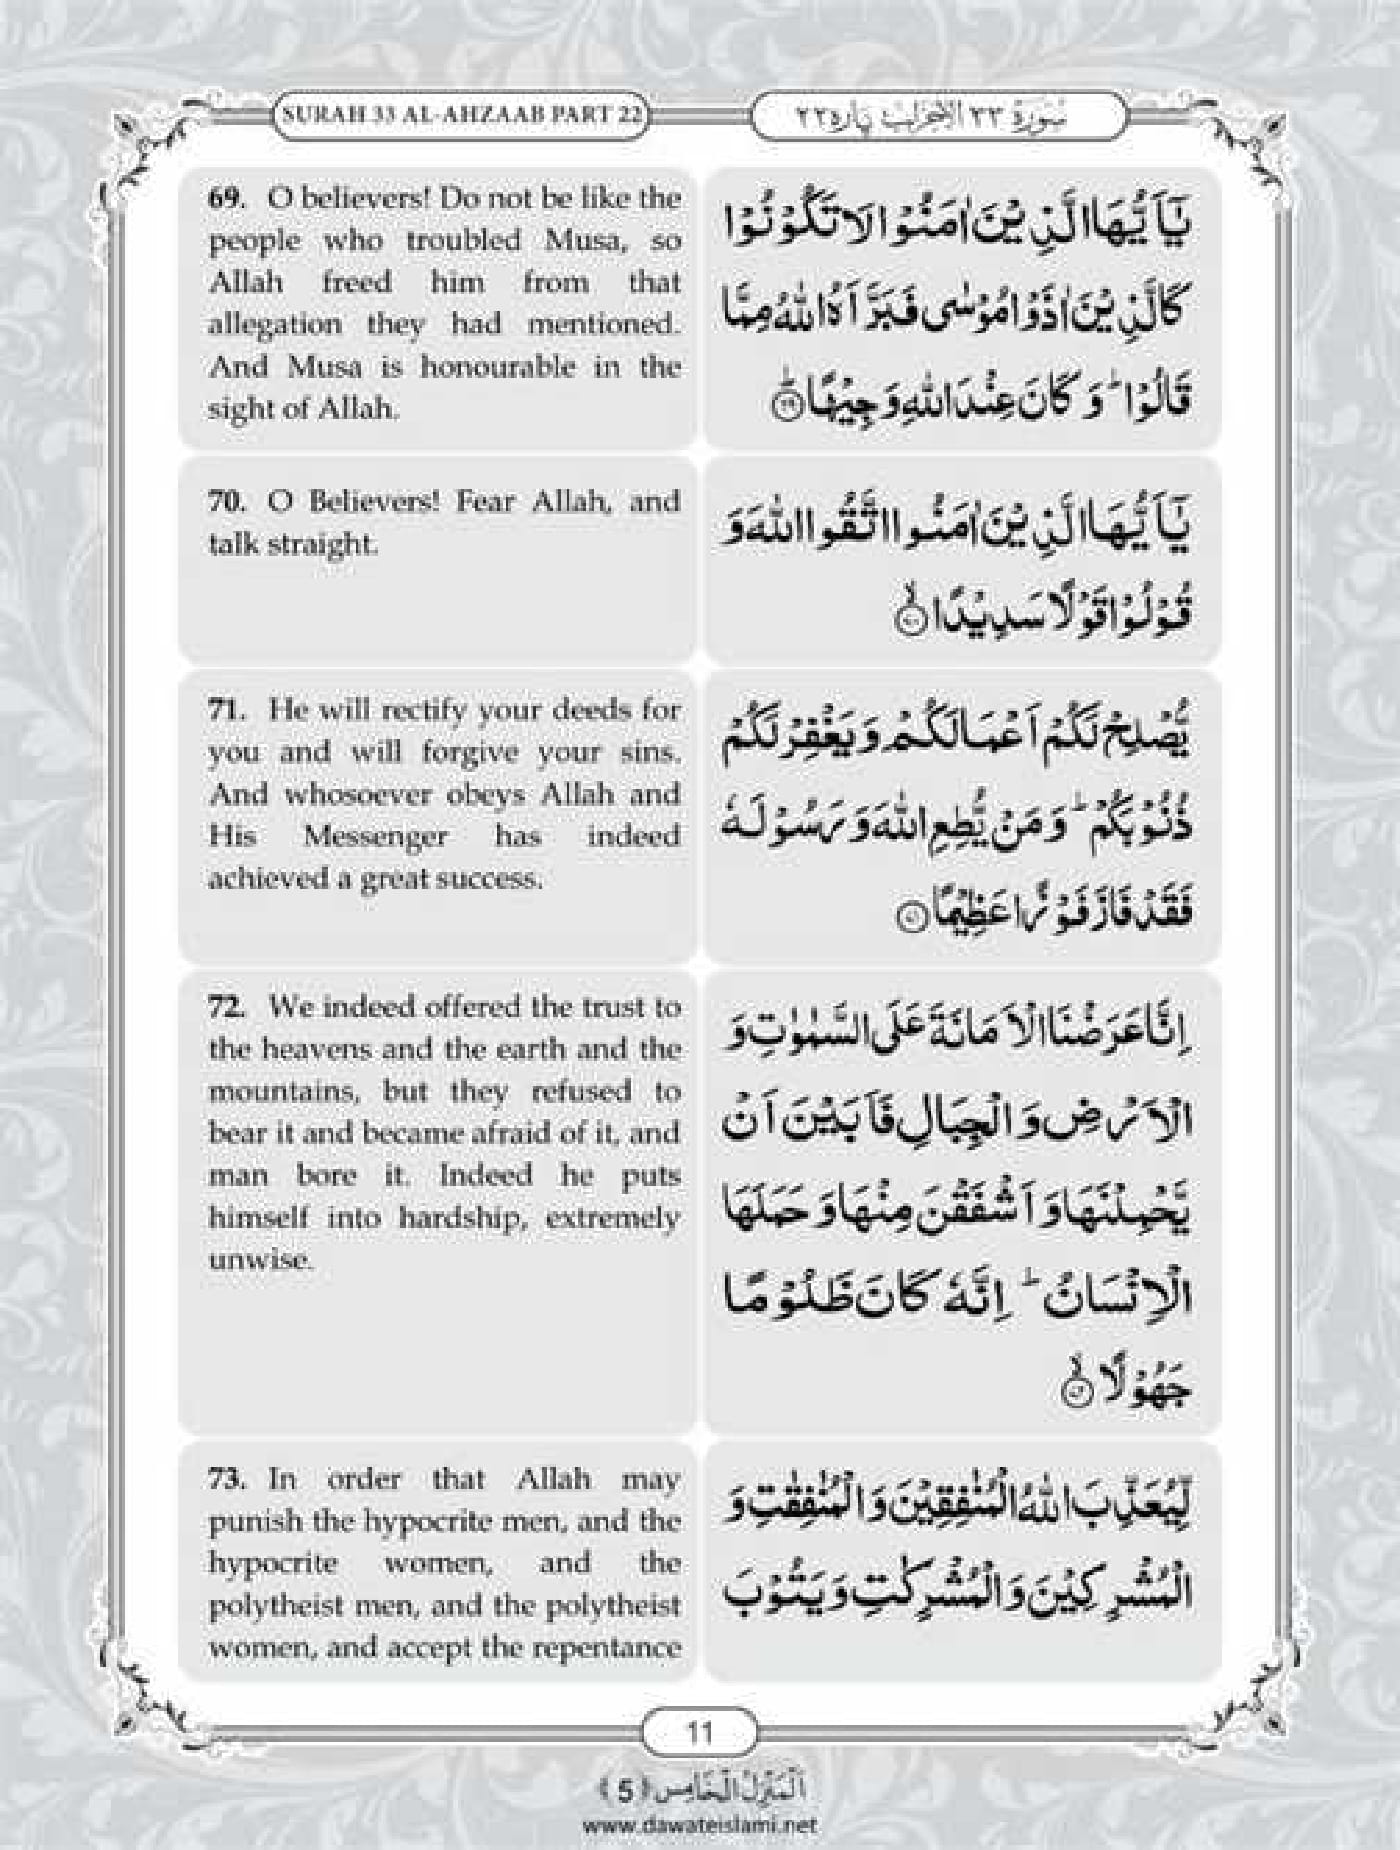 SURAH 33 AL-AHZAAB PART 22
سُوْرَةُ ٣٣ الْاَحْزَاب پاره ٢٢
69. O believers! Do not be like the
people who troubled Musa, so
Allah freed him from that
allegation they had mentioned.
And Musa is honourable in the
sight of Allah.
يٰۤاَيُّهَا الَّذِيْنَ اٰمَنُوْا لَا تَكُوْنُوْا
كَالَّذِيْنَ اٰذَوْا مُوْسٰى فَبَرَّاَهُ اللّٰهُ مِمَّا
قَالُوْا ؕ وَ كَانَ عِنْدَ اللّٰهِ وَجِيْهًا ﴿ؕ۶۹﴾
70. O Believers! Fear Allah, and
talk straight.
يٰۤاَيُّهَا الَّذِيْنَ اٰمَنُوا اتَّقُوا اللّٰهَ وَ
قُوْلُوْا قَوْلًا سَدِيْدًا ﴿ۙ۷۰﴾
71. He will rectify your deeds for
you and will forgive your sins.
And whosoever obeys Allah and
His Messenger has indeed
achieved a great success.
يُّصْلِحْ لَكُمْ اَعْمَالَكُمْ وَ يَغْفِرْ لَكُمْ
ذُنُوْبَكُمْ ؕ وَ مَنْ يُّطِعِ اللّٰهَ وَ رَسُوْلَهٗ
فَقَدْ فَازَ فَوْزًا عَظِيْمًا ﴿۷۱﴾
72. We indeed offered the trust to
the heavens and the earth and the
mountains, but they refused to
bear it and became afraid of it, and
man bore it. Indeed he puts
himself into hardship, extremely
unwise.
اِنَّا عَرَضْنَا الْاَمَانَةَ عَلَى السَّمٰوٰتِ وَ
الْاَرْضِ وَ الْجِبَالِ فَاَبَيْنَ اَنْ
يَّحْمِلْنَهَا وَ اَشْفَقْنَ مِنْهَا وَ حَمَلَهَا
الْاِنْسَانُ ؕ اِنَّهٗ كَانَ ظَلُوْمًا
جَهُوْلًا ﴿ۙ۷۲﴾
73. In order that Allah may
punish the hypocrite men, and the
hypocrite women, and the
polytheist men, and the polytheist
women, and accept the repentance
لِّيُعَذِّبَ اللّٰهُ الْمُنٰفِقِيْنَ وَ الْمُنٰفِقٰتِ وَ
الْمُشْرِكِيْنَ وَ الْمُشْرِكٰتِ وَ يَتُوْبَ
11
اَلْمَنْزِلُ الْخَامِس ﴿ 5 ﴾
www.dawateislami.net